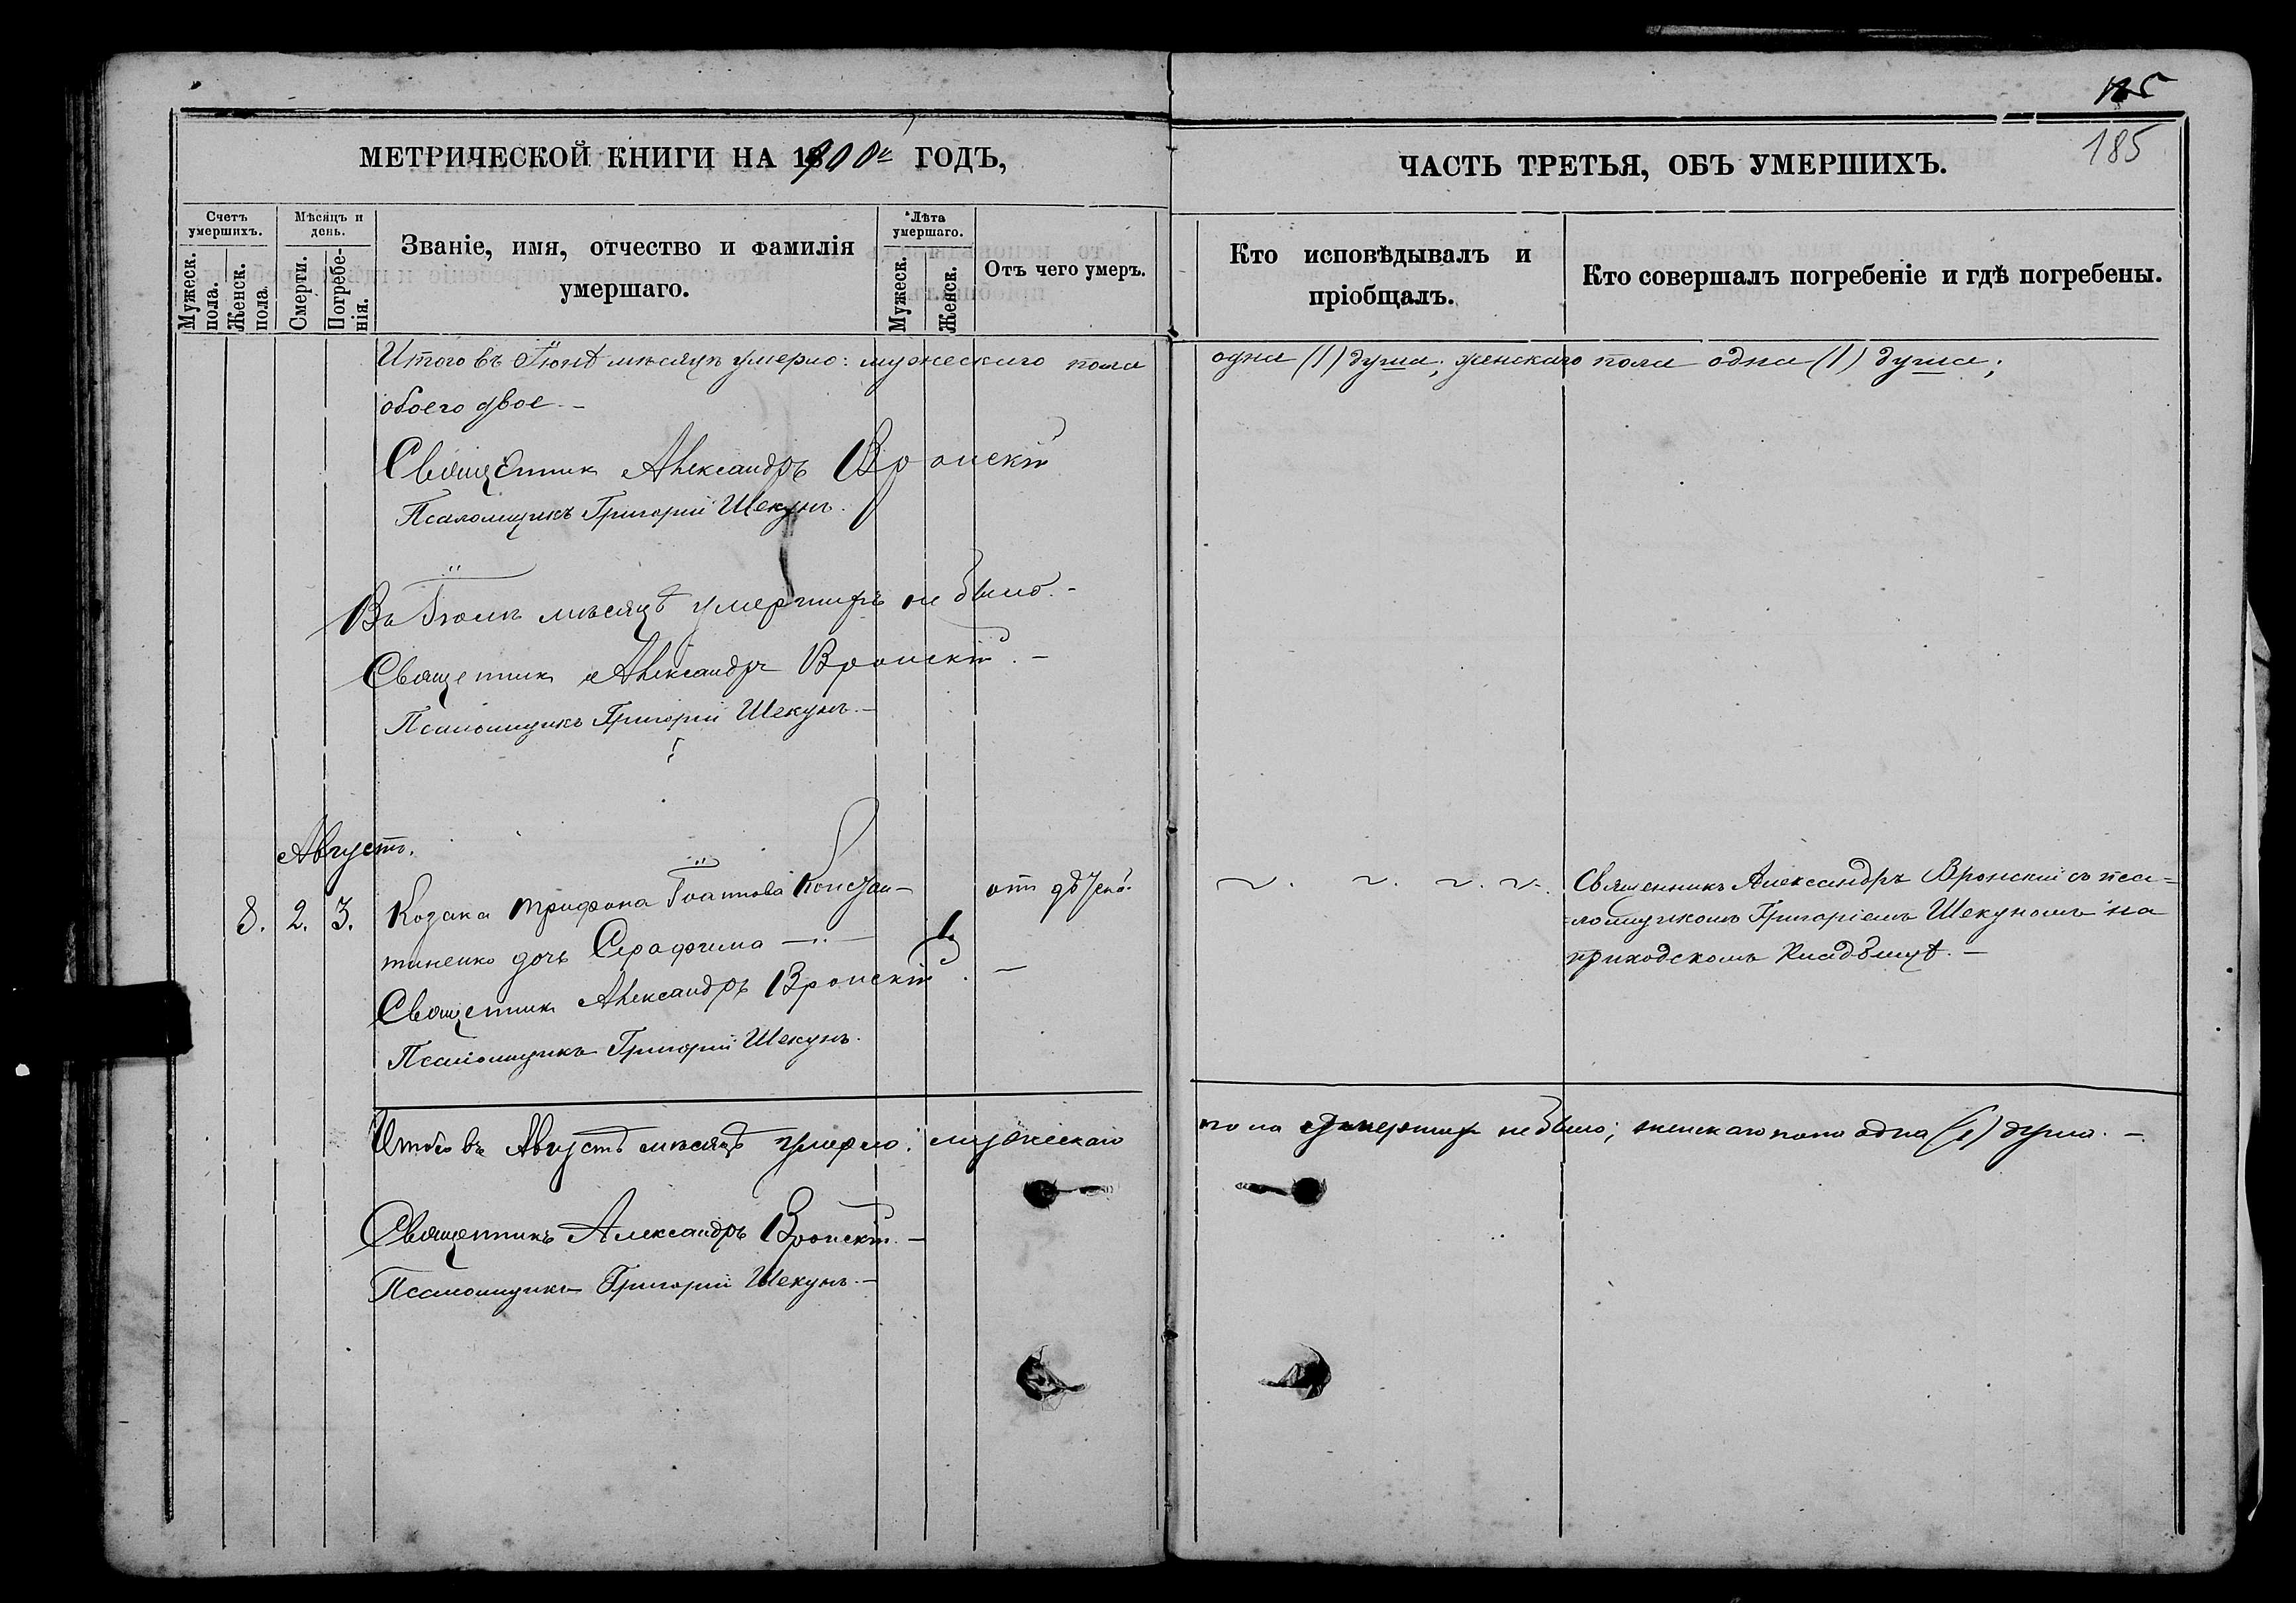 185
МЕТРИЧЕСКОЙ КНИГИ НА 1900й ГОДЪ,
ЧАСТЬ ТРЕТЬЯ, ОБЪ УМЕРШИХЪ.
Счетъ умершихъ.
Мужеск. пола.
Женск. пола.
Мѣсяцъ и день.
Смерти.
Погребенія.
Званіе, имя, отчество и фамилія
умершаго.
Лѣта умершаго.
Мужеск.
Женск.
Отъ чего умеръ.
Кто исповѣдывалъ и
пріобщалъ.
Кто совершалъ погребеніе и гдѣ погребены.
Итого въ Іюнѣ мѣсяцѣ умерло: мужескаго пола одна (1) душа; женскаго пола одна (1) душа;
обоего двое. –
Священникъ Александръ Вронскій
Псаломщикъ Григорій Шекунъ.
Въ Іюлѣ мѣсяцѣ умершихъ не было. –
Священникъ Александръ Вронскій. –
Псаломщикъ Григорій Шекунъ. –
Августъ.
8. 2. 3. Козака Трифона Іоаннова Констан-
тиненко дочь Серафима
1/2
Священникъ Александръ Вронскій. –
Псаломщикъ Григорій Шекунъ.
Священникъ Александръ Вронскій съ пса=
=ломщикомъ Григоріемъ Шекуномъ на
приходскомъ кладбищѣ. –
Итого въ Августѣ мѣсяцѣ умерло: мужескаго пола умершихъ не было; женскаго пола одна (1) душа. –
Священникъ Александръ Вронскій. –
Псаломщикъ Григорій Шекунъ. –